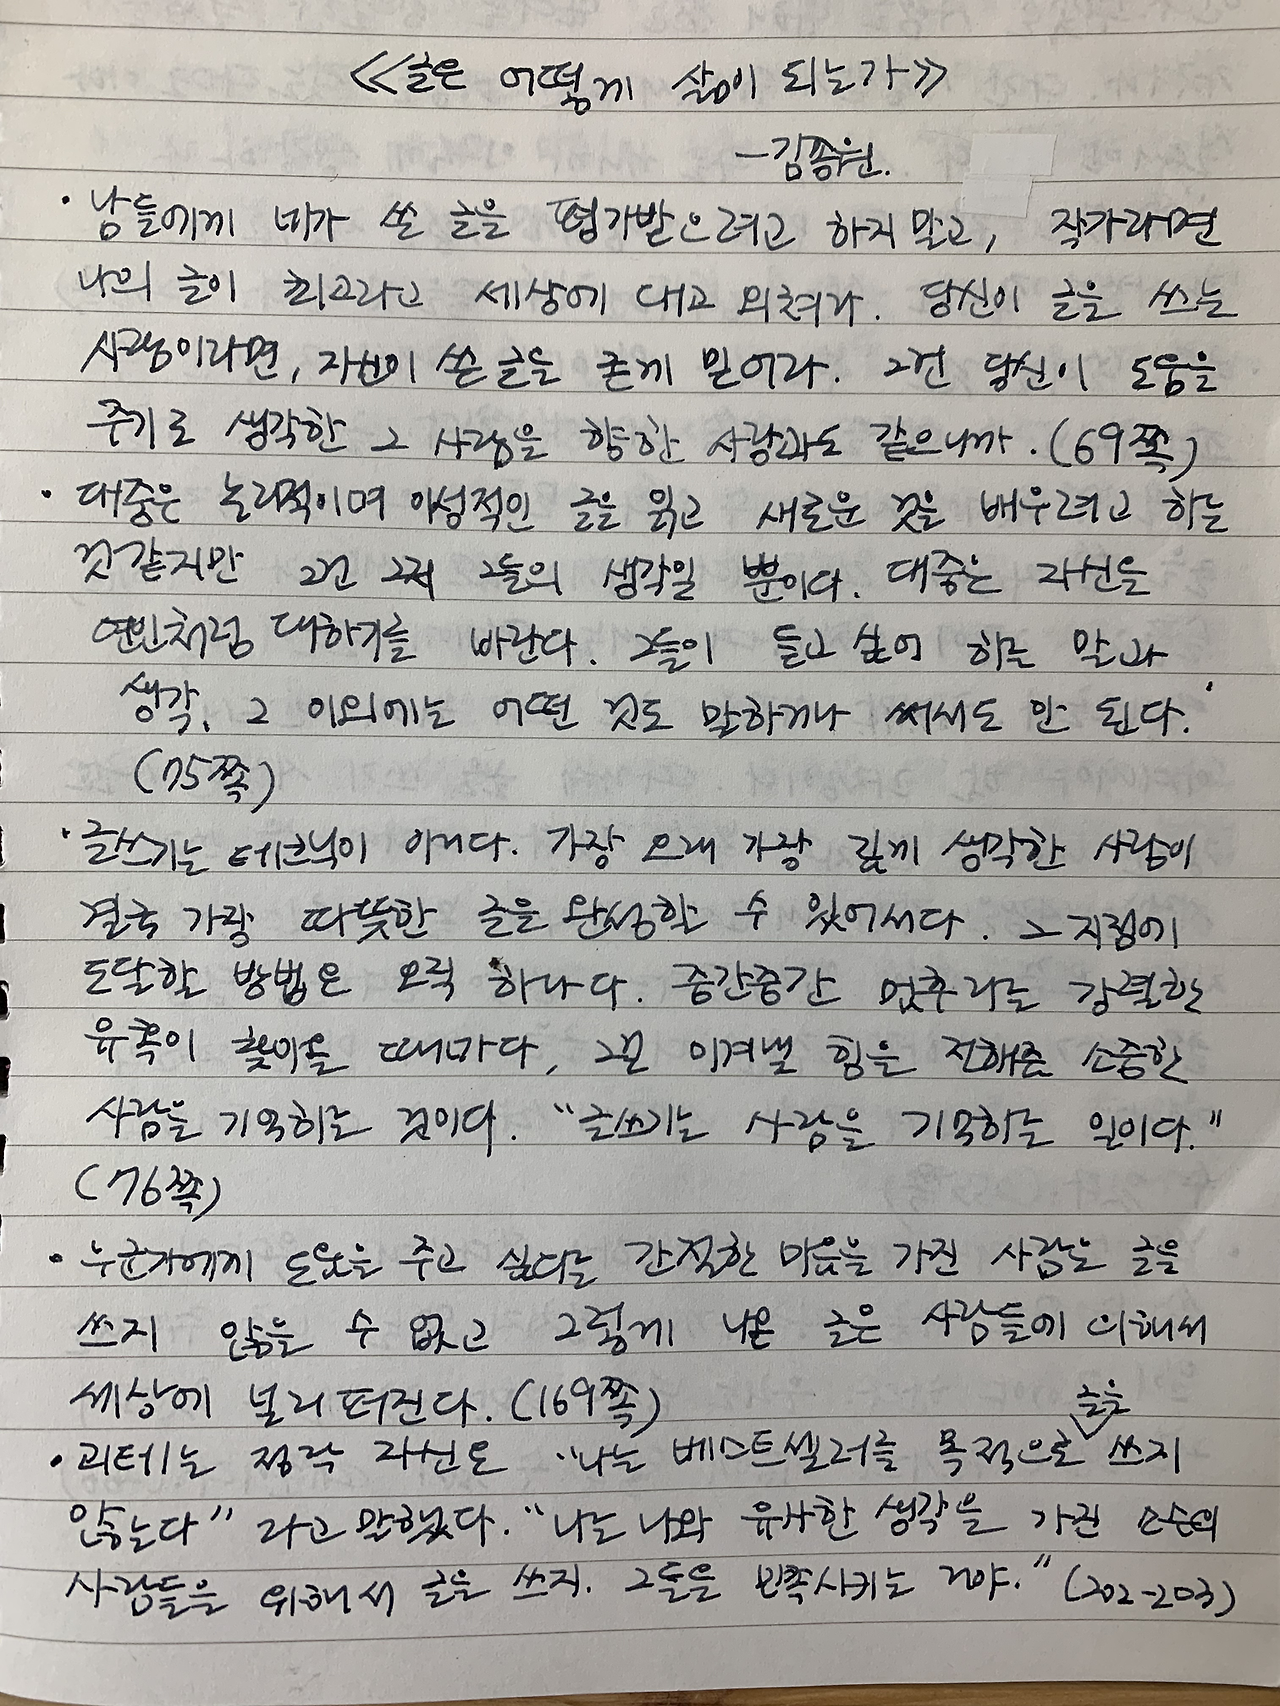 ≪글은 어떻게 삶이 되는가≫
-김종원.
· 남들에게 내가 쓴 글을 평가받으려고 하지 말고, 작가라면
나의 글이 최고라고 세상에 대고 외쳐라. 당신이 글을 쓰는
사람이라면, 자신이 쓴 글을 굳게 믿어라. 그건 당신이 도움을
주기로 생각한 그 사람을 향한 사랑과도 같으니까. (69쪽)
· 대중은 논리적이며 이성적인 글을 읽고 새로운 것을 배우려고 하는
것 같지만 그건 그저 그들의 생각일 뿐이다. 대중은 자신을
연인처럼 대하기를 바란다. 그들이 듣고 싶어 하는 말과
생각, 그 이외에는 어떤 것도 말하거나 써서도 안 된다.
(75쪽)
· 글쓰기는 테크닉이 아니다. 가장 오래 가장 깊게 생각한 사람이
결국 가장 따뜻한 글을 완성할 수 있어서다. 그 지점에
도달할 방법은 오직 하나다. 중간중간 멈추라는 강렬한
유혹이 찾아올 때마다, 그걸 이겨낼 힘을 전해준 소중한
사람을 기억하는 것이다. "글쓰기는 사람을 기억하는 일이다."
(76쪽)
· 누군가에게 도움을 주고 싶다는 간절한 마음을 가진 사람은 글을
쓰지 않을 수 없고 그렇게 나온 글은 사람들에 의해서
세상에 널리 퍼진다. (169쪽)
글을
· 괴테는 정작 자신은 "나는 베스트셀러를 목적으로 쓰지
않는다" 라고 말했다. "나는 나와 유사한 생각을 가진 소수의
사람들을 위해서 글을 쓰지. 그들을 만족시키는 거야." (202-203)